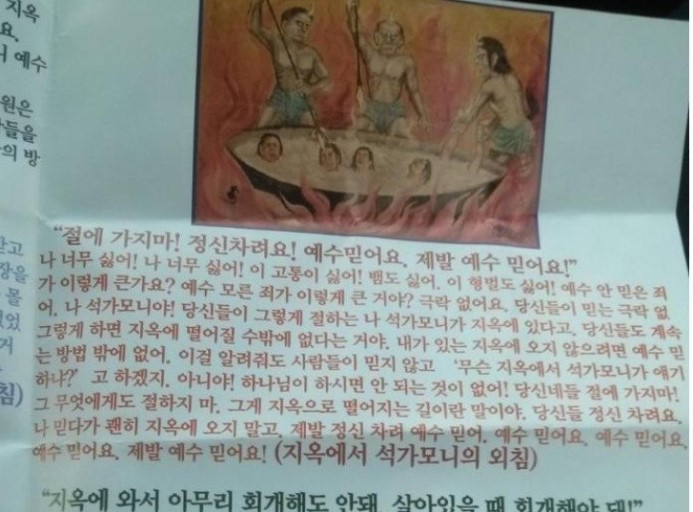 지옥
요.
예수
원은
들을
의 방
"절에 가지마! 정신차려요! 예수믿어요. 제발 예수 믿어요!"
나 너무 싫어! 나 너무 싫어! 이 고통이 싫어! 뱀도 싫어. 이 형벌도 싫어! 예수 안 믿은 죄
가 이렇게 큰가요? 예수 모른 죄가 이렇게 큰 거야? 극락 없어요. 당신들이 믿는 극락 없
어. 나 석가모니야! 당신들이 그렇게 절하는 나 석가모니가 지옥에 있다고. 당신들도 계속
그렇게 하면 지옥에 떨어질 수밖에 없다는 거야. 내가 있는 지옥에 오지 않으려면 예수 믿
는 방법 밖에 없어. 이걸 알려줘도 사람들이 믿지 않고 '무슨 지옥에서 석가모니가 얘기
하냐?' 고 하겠지. 아니야! 하나님이 하시면 안 되는 것이 없어! 당신네들 절에 가지마!
그 무엇에게도 절하지 마. 그게 지옥으로 떨어지는 길이란 말이야. 당신들 정신 차려요.
나 믿다가 괜히 지옥에 오지 말고. 제발 정신 차려 예수 믿어. 예수 믿어요. 예수 믿어요.
예수 믿어요. 제발 예수 믿어요! (지옥에서 석가모니의 외침)
"지옥에 와서 아무리 회개해도 안돼. 살아있을 때 회개해야 돼!"